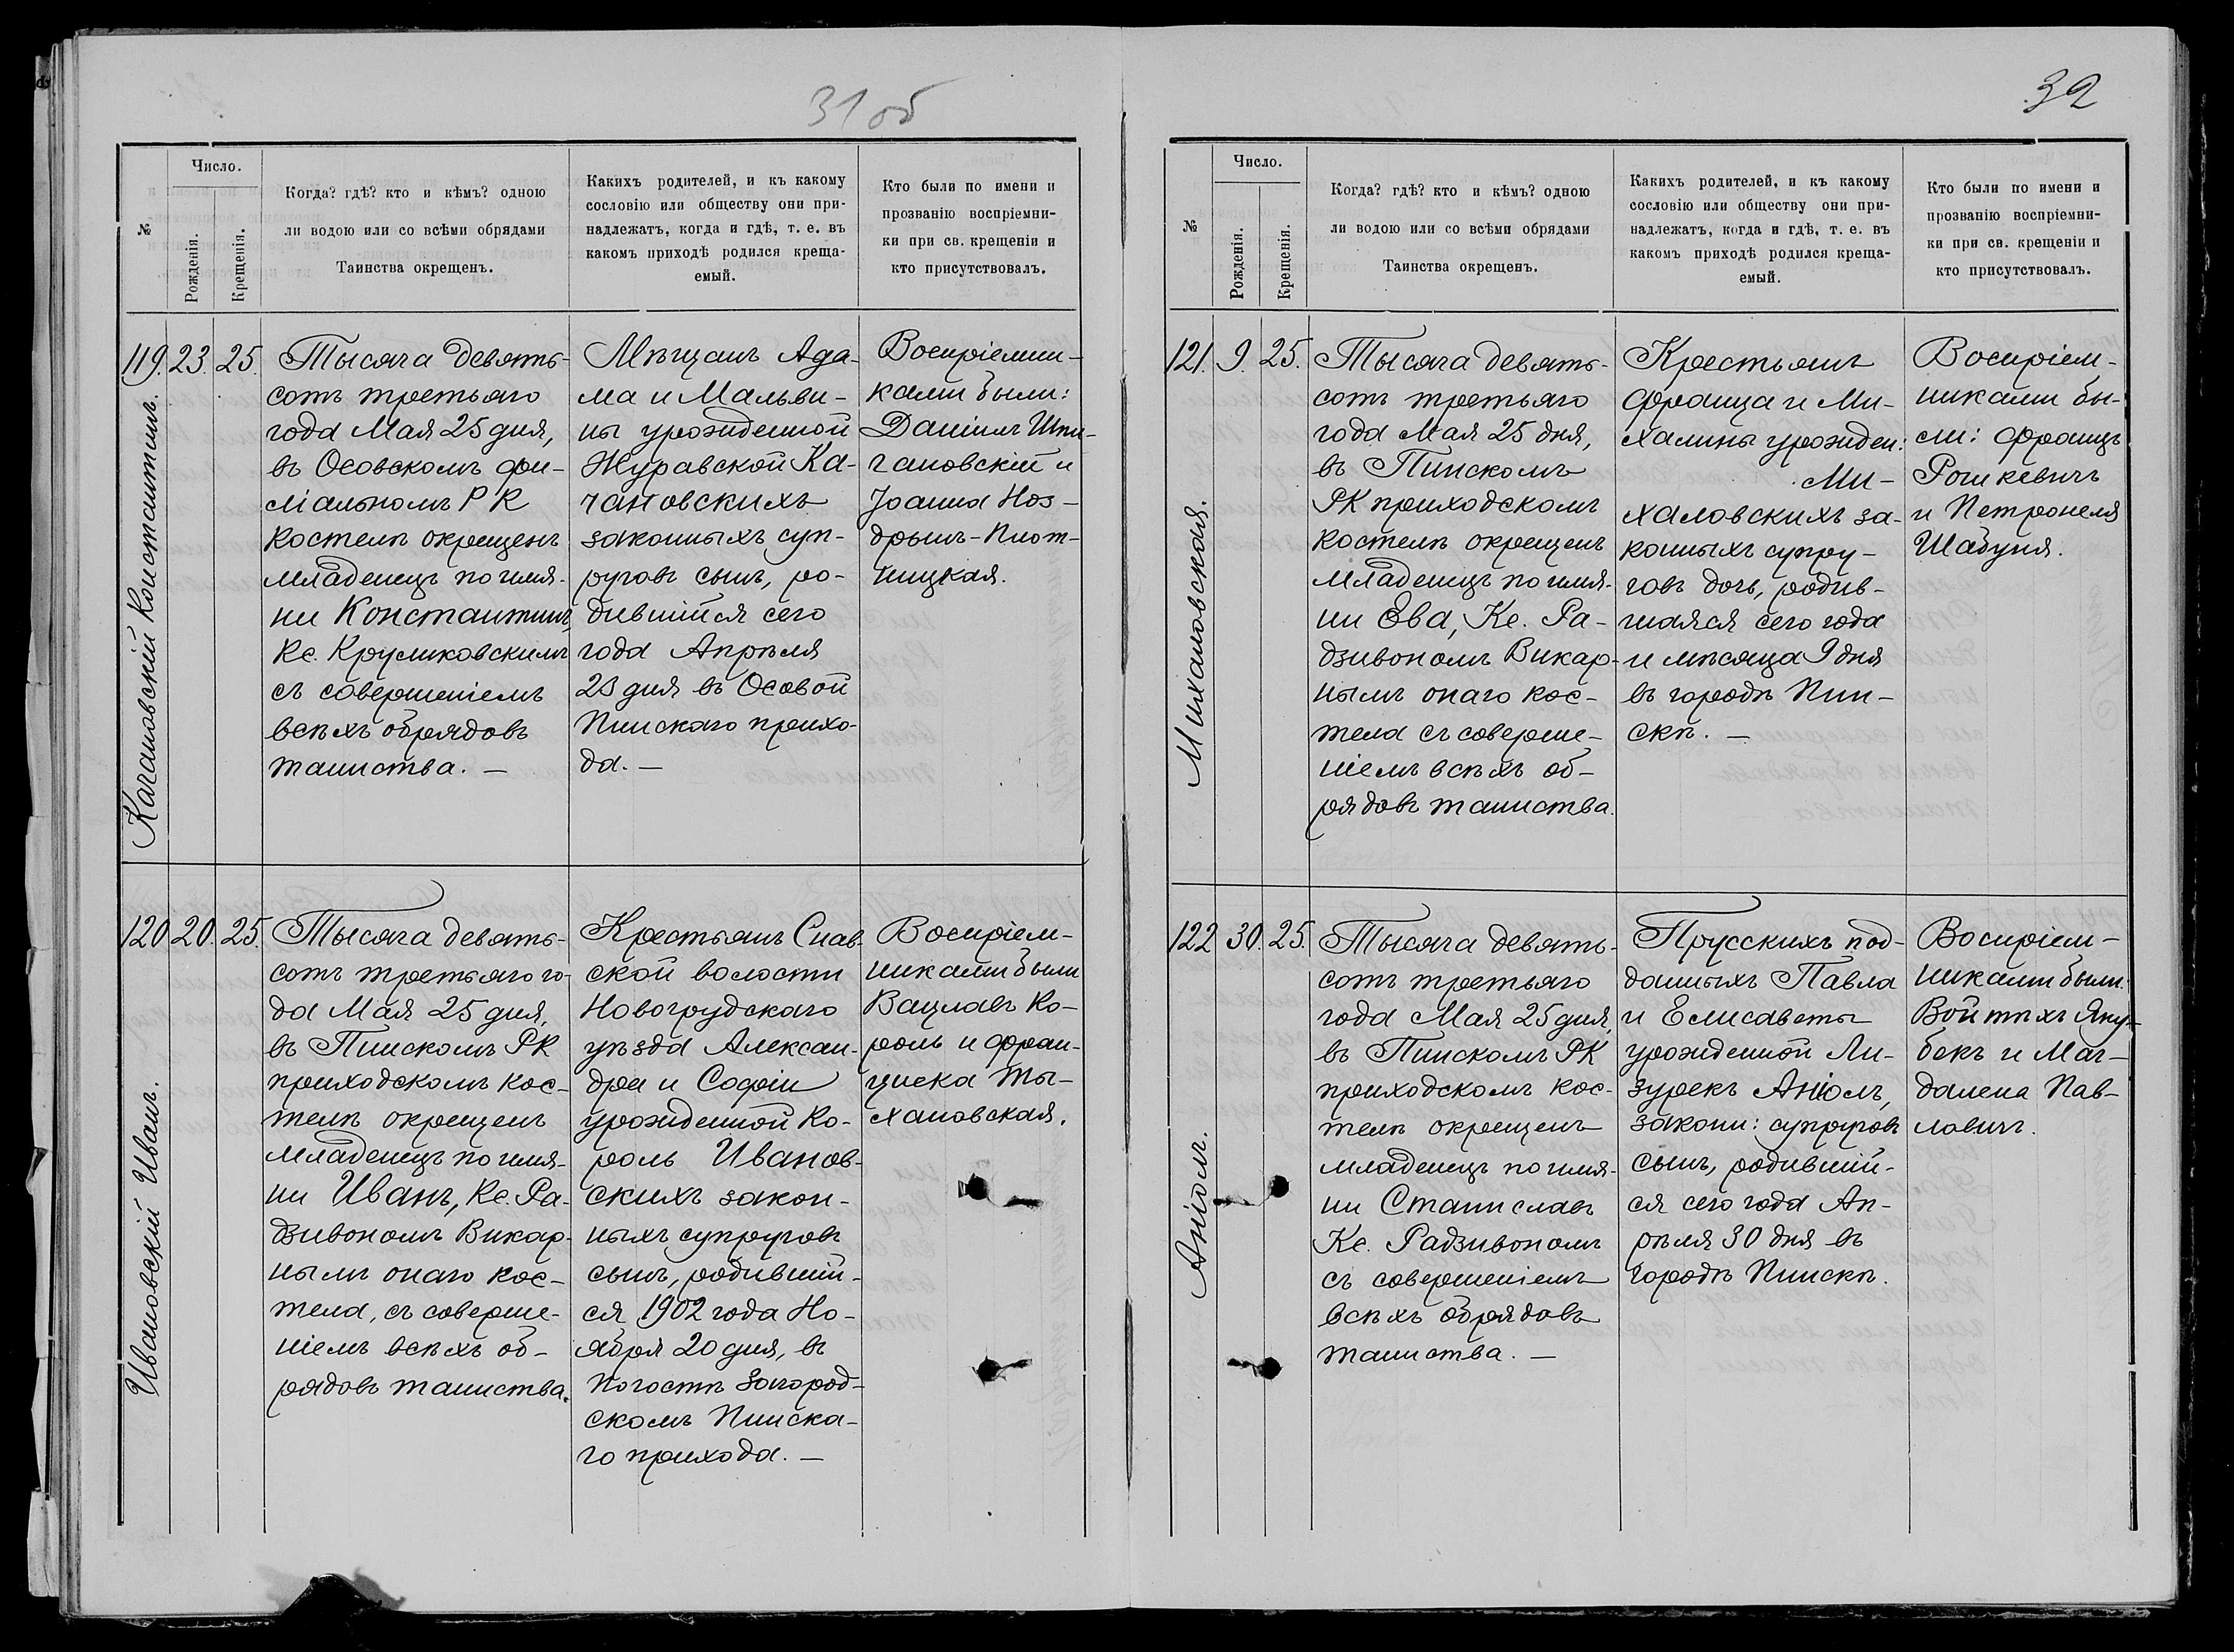 31 об
№
Число.
Рожденія.
Крещенія.
Когда? гдѣ? кто и кѣмъ? одною
ли водою или со всѣми обрядами
Таинства окрещенъ.
Какихъ родителей, и къ какому
сословію или обществу они при-
надлежатъ, когда и гдѣ, т. е. въ
какомъ приходѣ родился креща-
емый.
Кто были по имени и
прозванію воспріемни-
ки при св. крещеніи и
кто присутствовалъ.
119. 23. 25.
Качановскій Константинъ.
Тысяча девять-
сотъ третьяго
года Мая 25 дня,
въ Осовскомъ фи-
ліальномъ Р К
костелѣ окрещенъ
младенецъ по имя-
ни Константинъ,
Кс. Крумиковскимъ
съ совершеніемъ
всѣхъ обрядовъ
таинства. —
Мѣщанъ Ада-
ма и Мальви-
ны урожденной
Журавской Ка-
чановскихъ
законныхъ суп-
руговъ сынъ, ро-
дившійся сего
года Апрѣля
23 дня въ Осовой
Пинскаго прихо-
да. —
Воспріемни-
ками были:
Даніилъ Шпи-
гановскій и
Іоанна Ноз-
дрынъ-Плот-
ницкая.
120 20. 25.
Ивановскій Иванъ.
Тысяча девять-
сотъ третьяго го-
да Мая 25 дня,
въ Пинскомъ РК
приходскомъ кос-
телѣ окрещенъ
младенецъ по имя-
ни Иванъ, Кс. Ра-
дзивономъ Викар-
нымъ онаго кос-
тела, съ соверше-
ніемъ всѣхъ об-
рядовъ таинства.
Крестьянъ Снов-
ской волости
Новогрудскаго
уѣзда Алексан-
дра и Софіи
урожденной Ко-
роль Иванов-
скихъ закон-
ныхъ супруговъ
сынъ, родившій-
ся 1902 года Но-
ября 20 дня, въ
Погостѣ Загород-
скомъ Пинска-
го прихода. —
Воспріем-
никами были
Вацлавъ Ко-
роль и Фран-
циска Ты-
хановская.
32
№
Число.
Рожденія.
Крещенія.
Когда? гдѣ? кто и кѣмъ? одною
ли водою или со всѣми обрядами
Таинства окрещенъ.
Какихъ родителей, и къ какому
сословію или обществу они при-
надлежатъ, когда и гдѣ, т. е. въ
какомъ приходѣ родился креща-
емый.
Кто были по имени и
прозванію воспріемни-
ки при св. крещеніи и
кто присутствовалъ.
121. 9. 25.
Михаловская.
Тысяча девять-
сотъ третьяго
года Мая 25 дня,
въ Пинскомъ
РК приходскомъ
костелѣ окрещенъ
младенецъ по имя-
ни Ева, Кс. Ра-
дзивономъ Викар-
нымъ онаго кос-
тела съ соверше-
ніемъ всѣхъ об-
рядовъ таинства.
Крестьянъ
Франца и Ми-
халины урожден:
Ми-
халовскихъ за-
конныхъ супру-
говъ дочь, родив-
шаяся сего года
и мѣсяца 9 дня
въ городѣ Пин-
скѣ. —
Воспріем-
никами бы-
ли: Францъ
Рошкевичъ
и Петронеля
Шабуня.
122 30. 25.
Аніолъ.
Тысяча девять-
сотъ третьяго
года Мая 25 дня,
въ Пинскомъ РК
приходскомъ кос-
телѣ окрещенъ
младенецъ по имя-
ни Станиславъ
Кс. Радзивономъ
съ совершеніемъ
всѣхъ обрядовъ
таинства. —
Прусскихъ под-
данныхъ Павла
и Елисаветы
урожденной Ли-
зурекъ Аніолъ,
законн: супруговъ
сынъ, родившій-
ся сего года Ап-
рѣля 30 дня въ
городѣ Пинскѣ.
Воспріем-
никами были:
Войтѣхъ Яку-
бекъ и Маг-
далена Пав-
ловичъ.